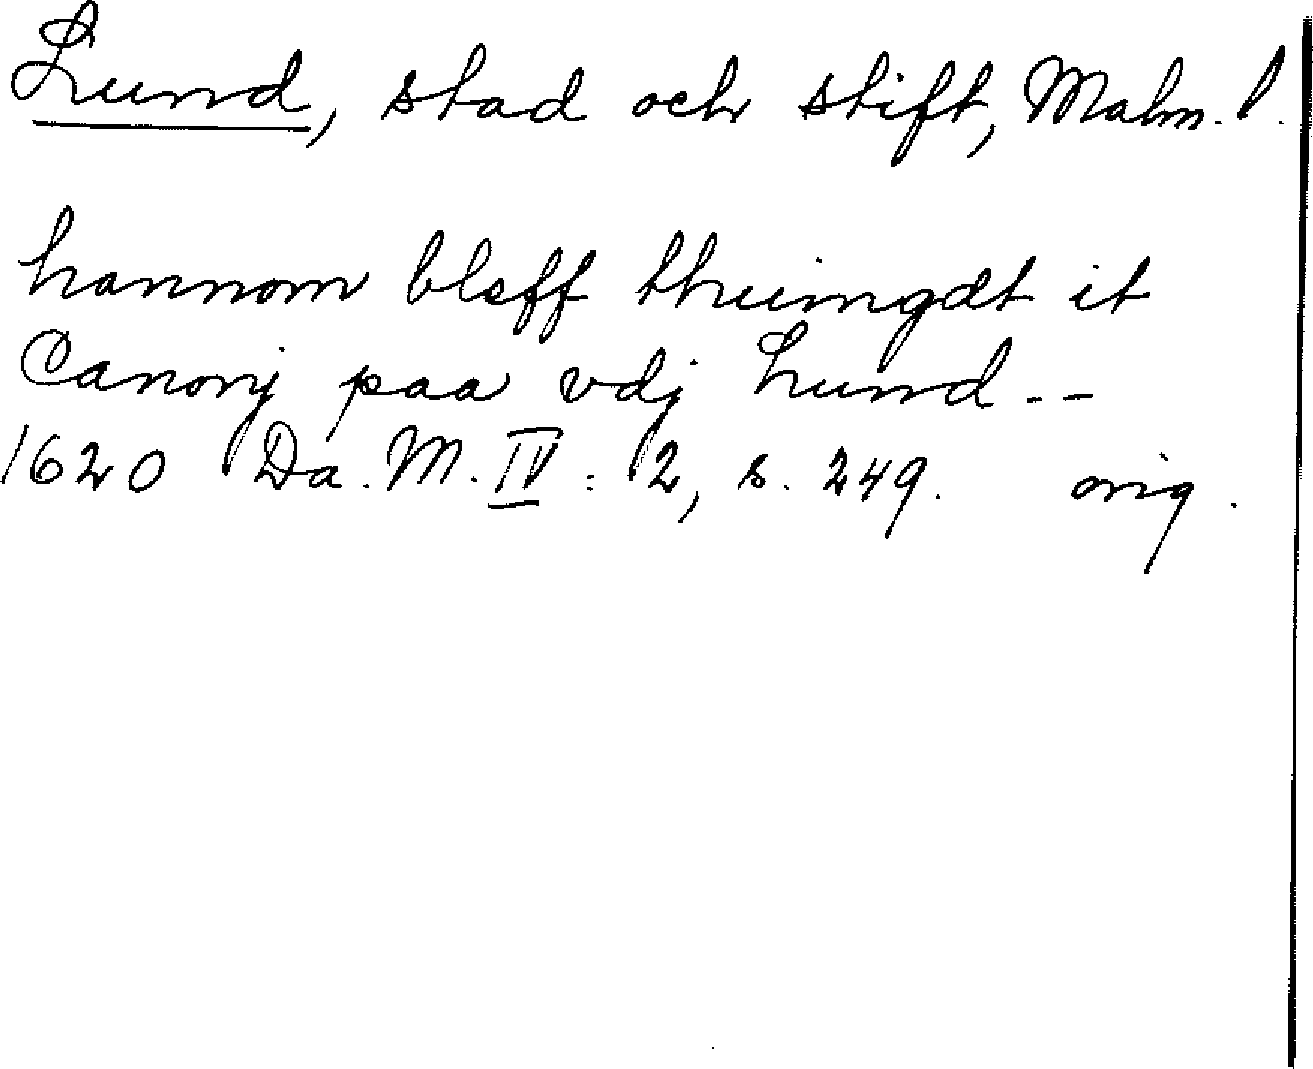 Lund, stad och stift, Malm. l.
hannom bleff thuingdt it
Canonj paa vdj Lund --
1620 Da. M. IV : 2, s. 249. orig.